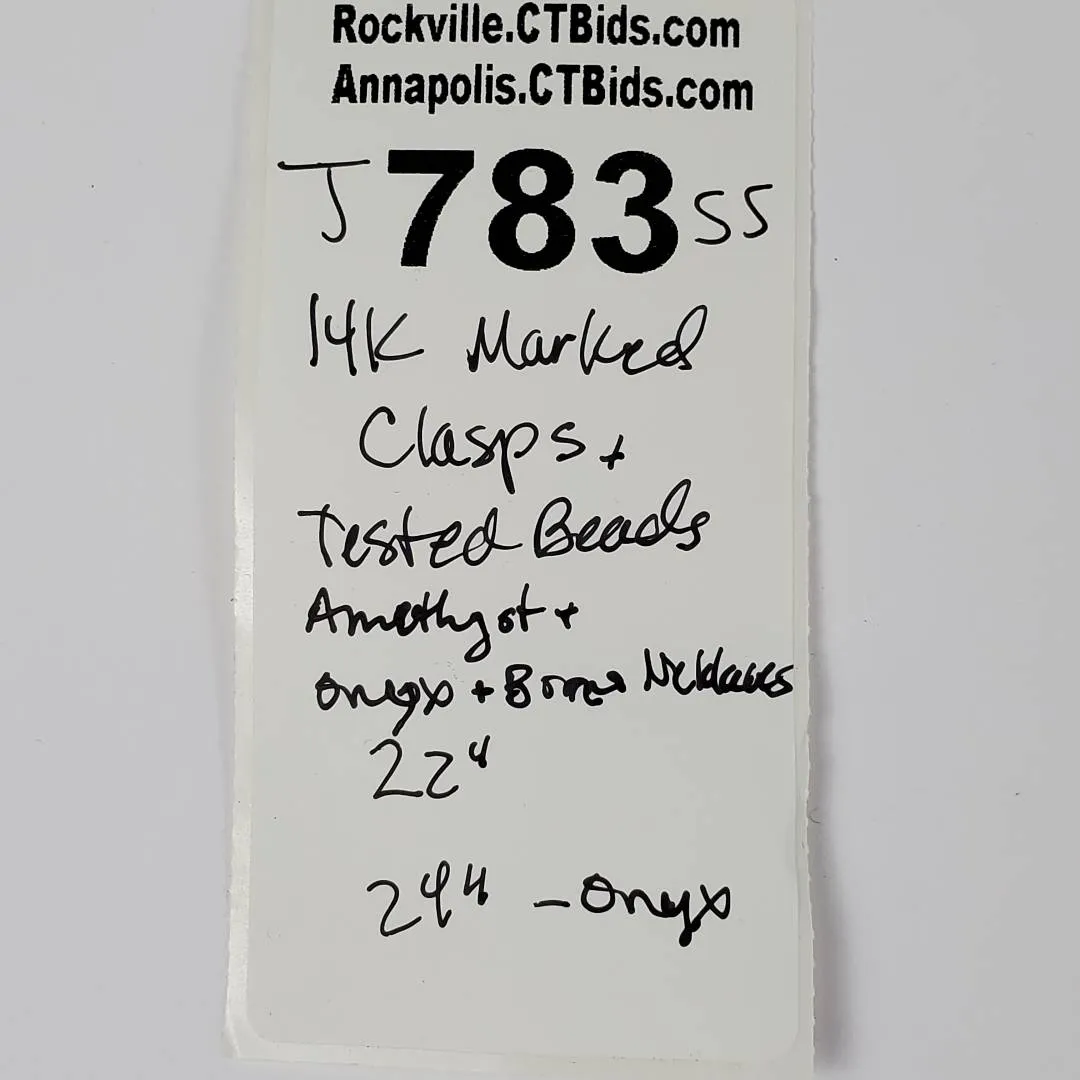 Rockville.CTBids.com
Annapolis.CTBids.com
J 783 SS
14K Marked
Clasps +
Tested Beads
Amethyst +
Onyx + Necklaces
22"
24" - Onyx